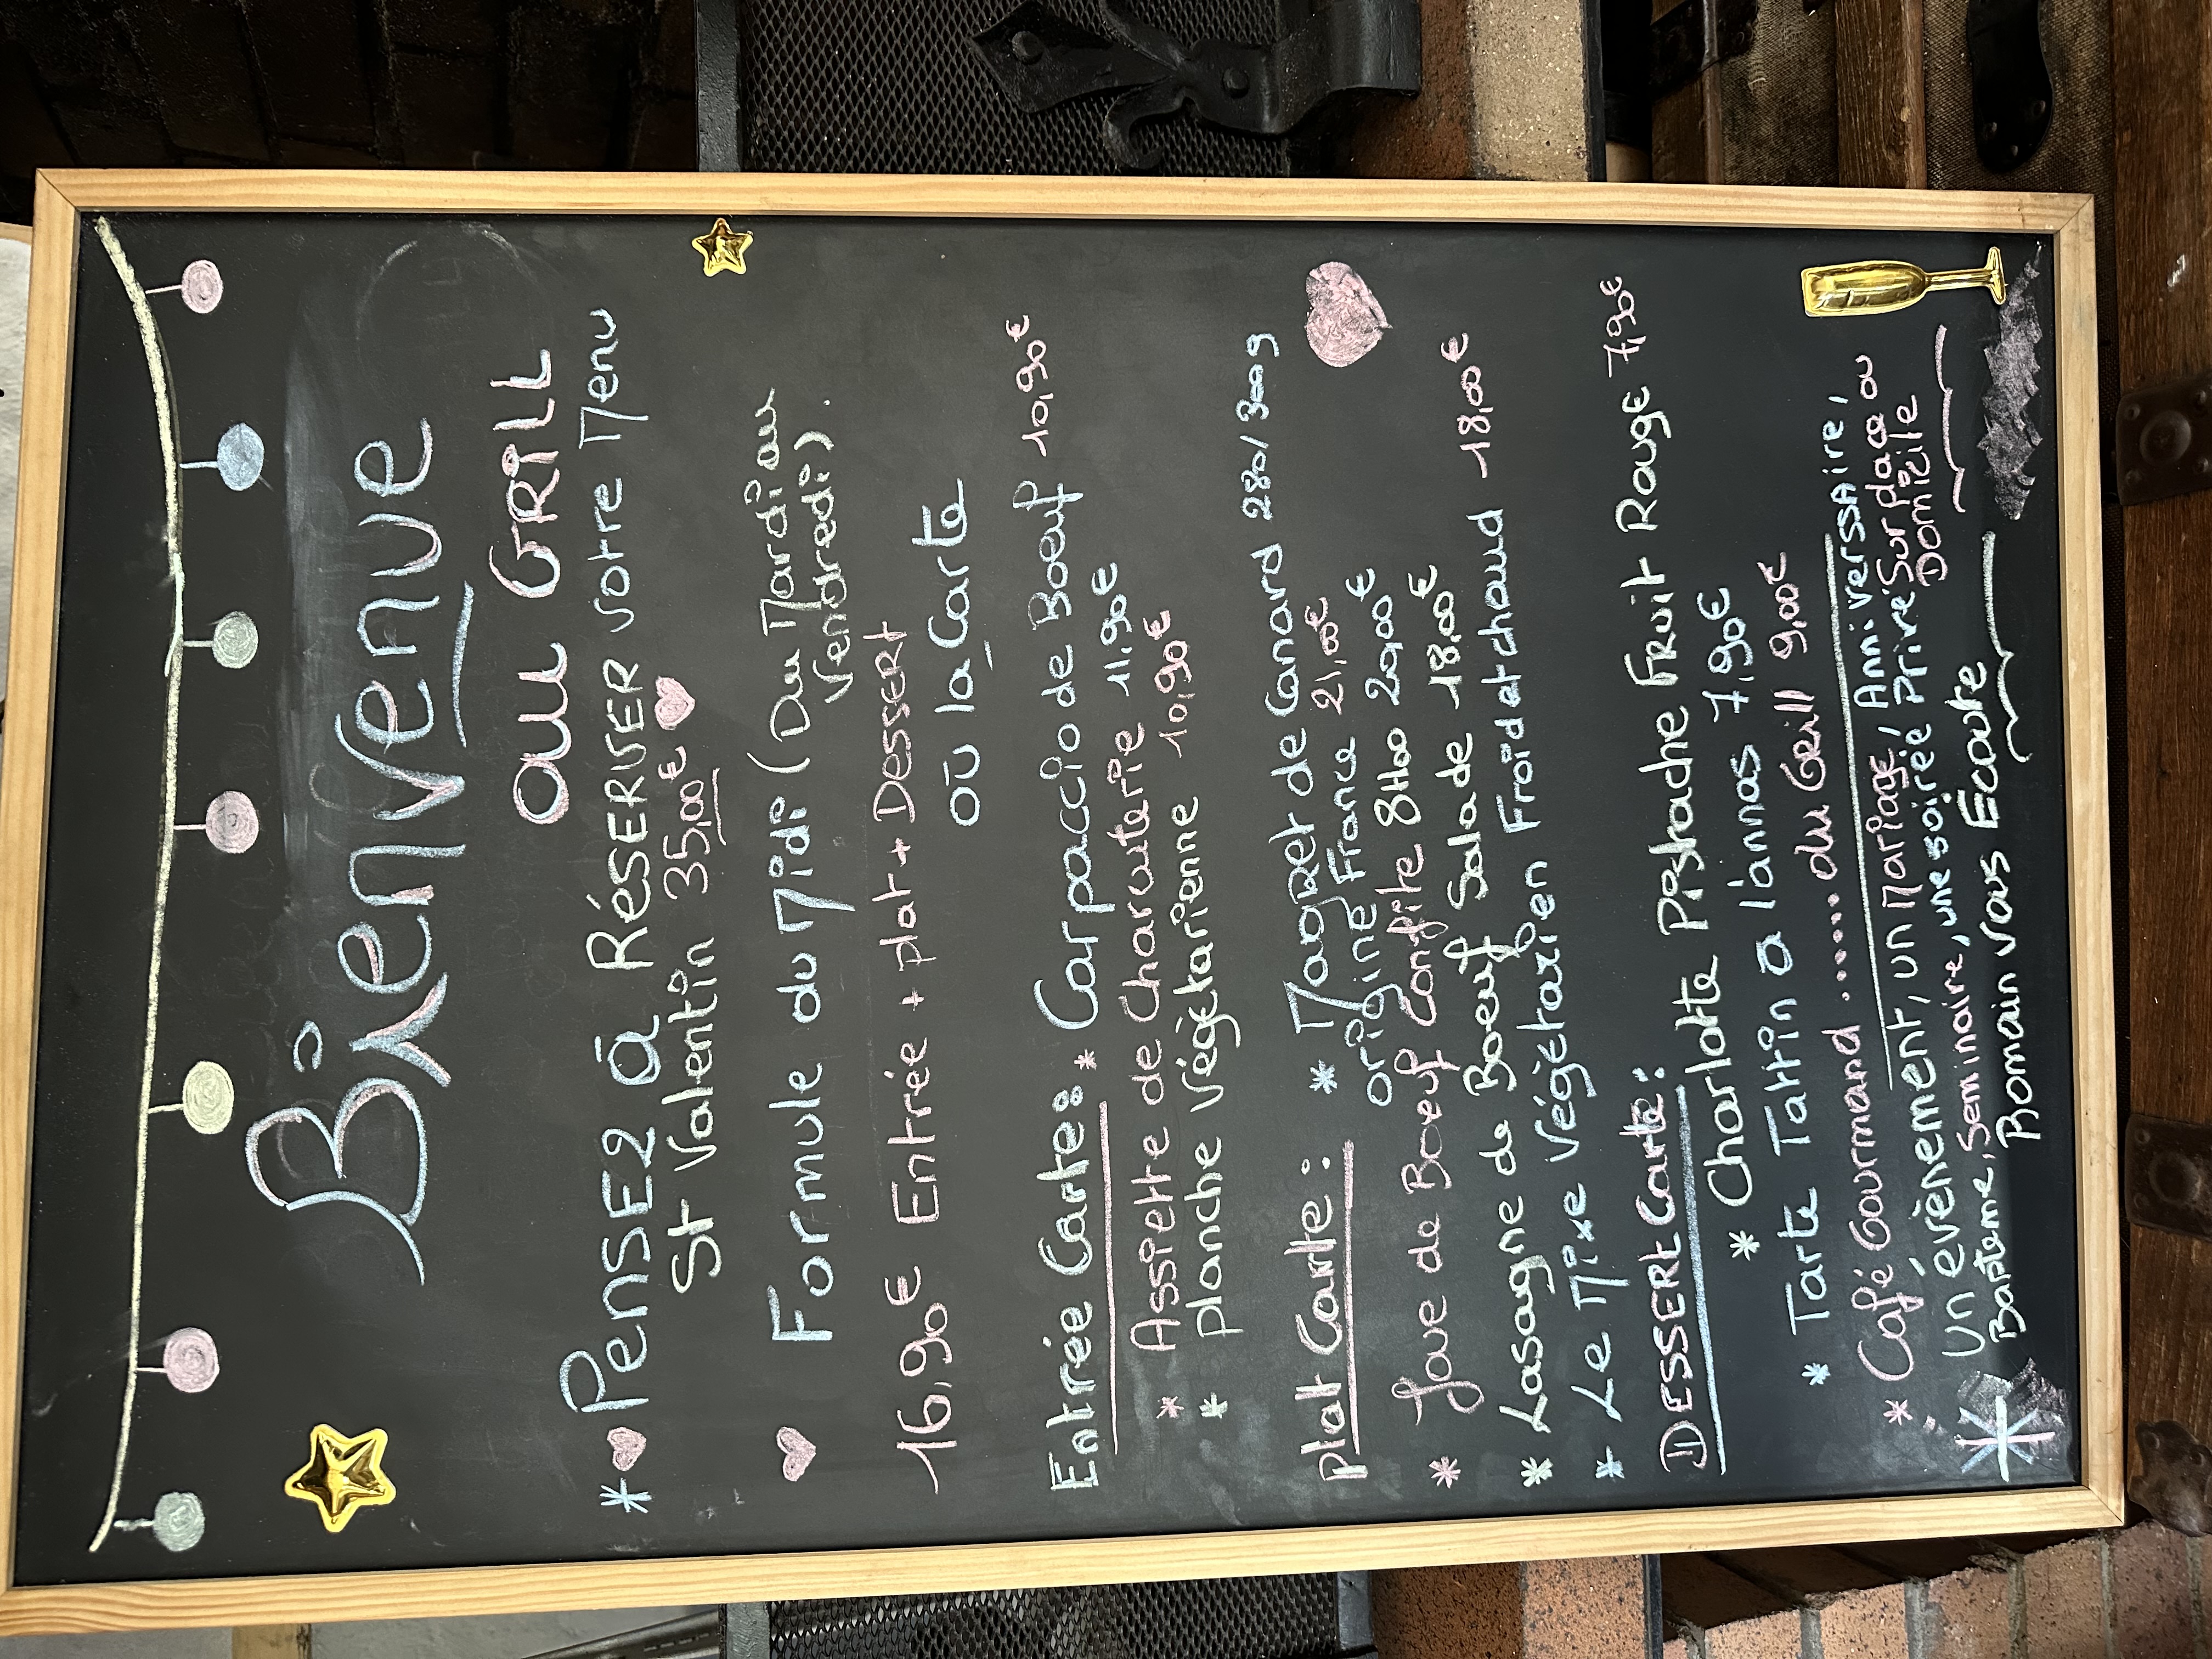 Bienvenue
au GRill
PensEz à RésERVER votre Menu
St Valentin 35,00€
Formule du Midi (Du Mardi au
Vendredi).
16,90€ Entrée + plat + Dessert
où la Carte
Entrée Carte: * Carpaccio de Boeuf 10,90€
* Assiette de Charcuterie 11,90€
* planche Végétarienne 10,90€
plat Carte: * Magret de Canard 280/300g
origine France 21,00€
* Joue de Boeuf Confite 8H00 20,00€
* Lasagne de Boeuf Salade 18,00€
* Le Mixe Végétarien Froid et chaud 18,00€
DESSERt Carte:
* Charlotte Pistache Fruit Rouge 7,90€
* Tarte Tattin a l'annas 7,90€
* Café Gourmand ....... du Grill 9,00€
Un évènement, un Mariage, Anniverssaire,
Bapteme, Seminaire, une soirée Privé Sur place ou
Domicile
Romain vous Écoute